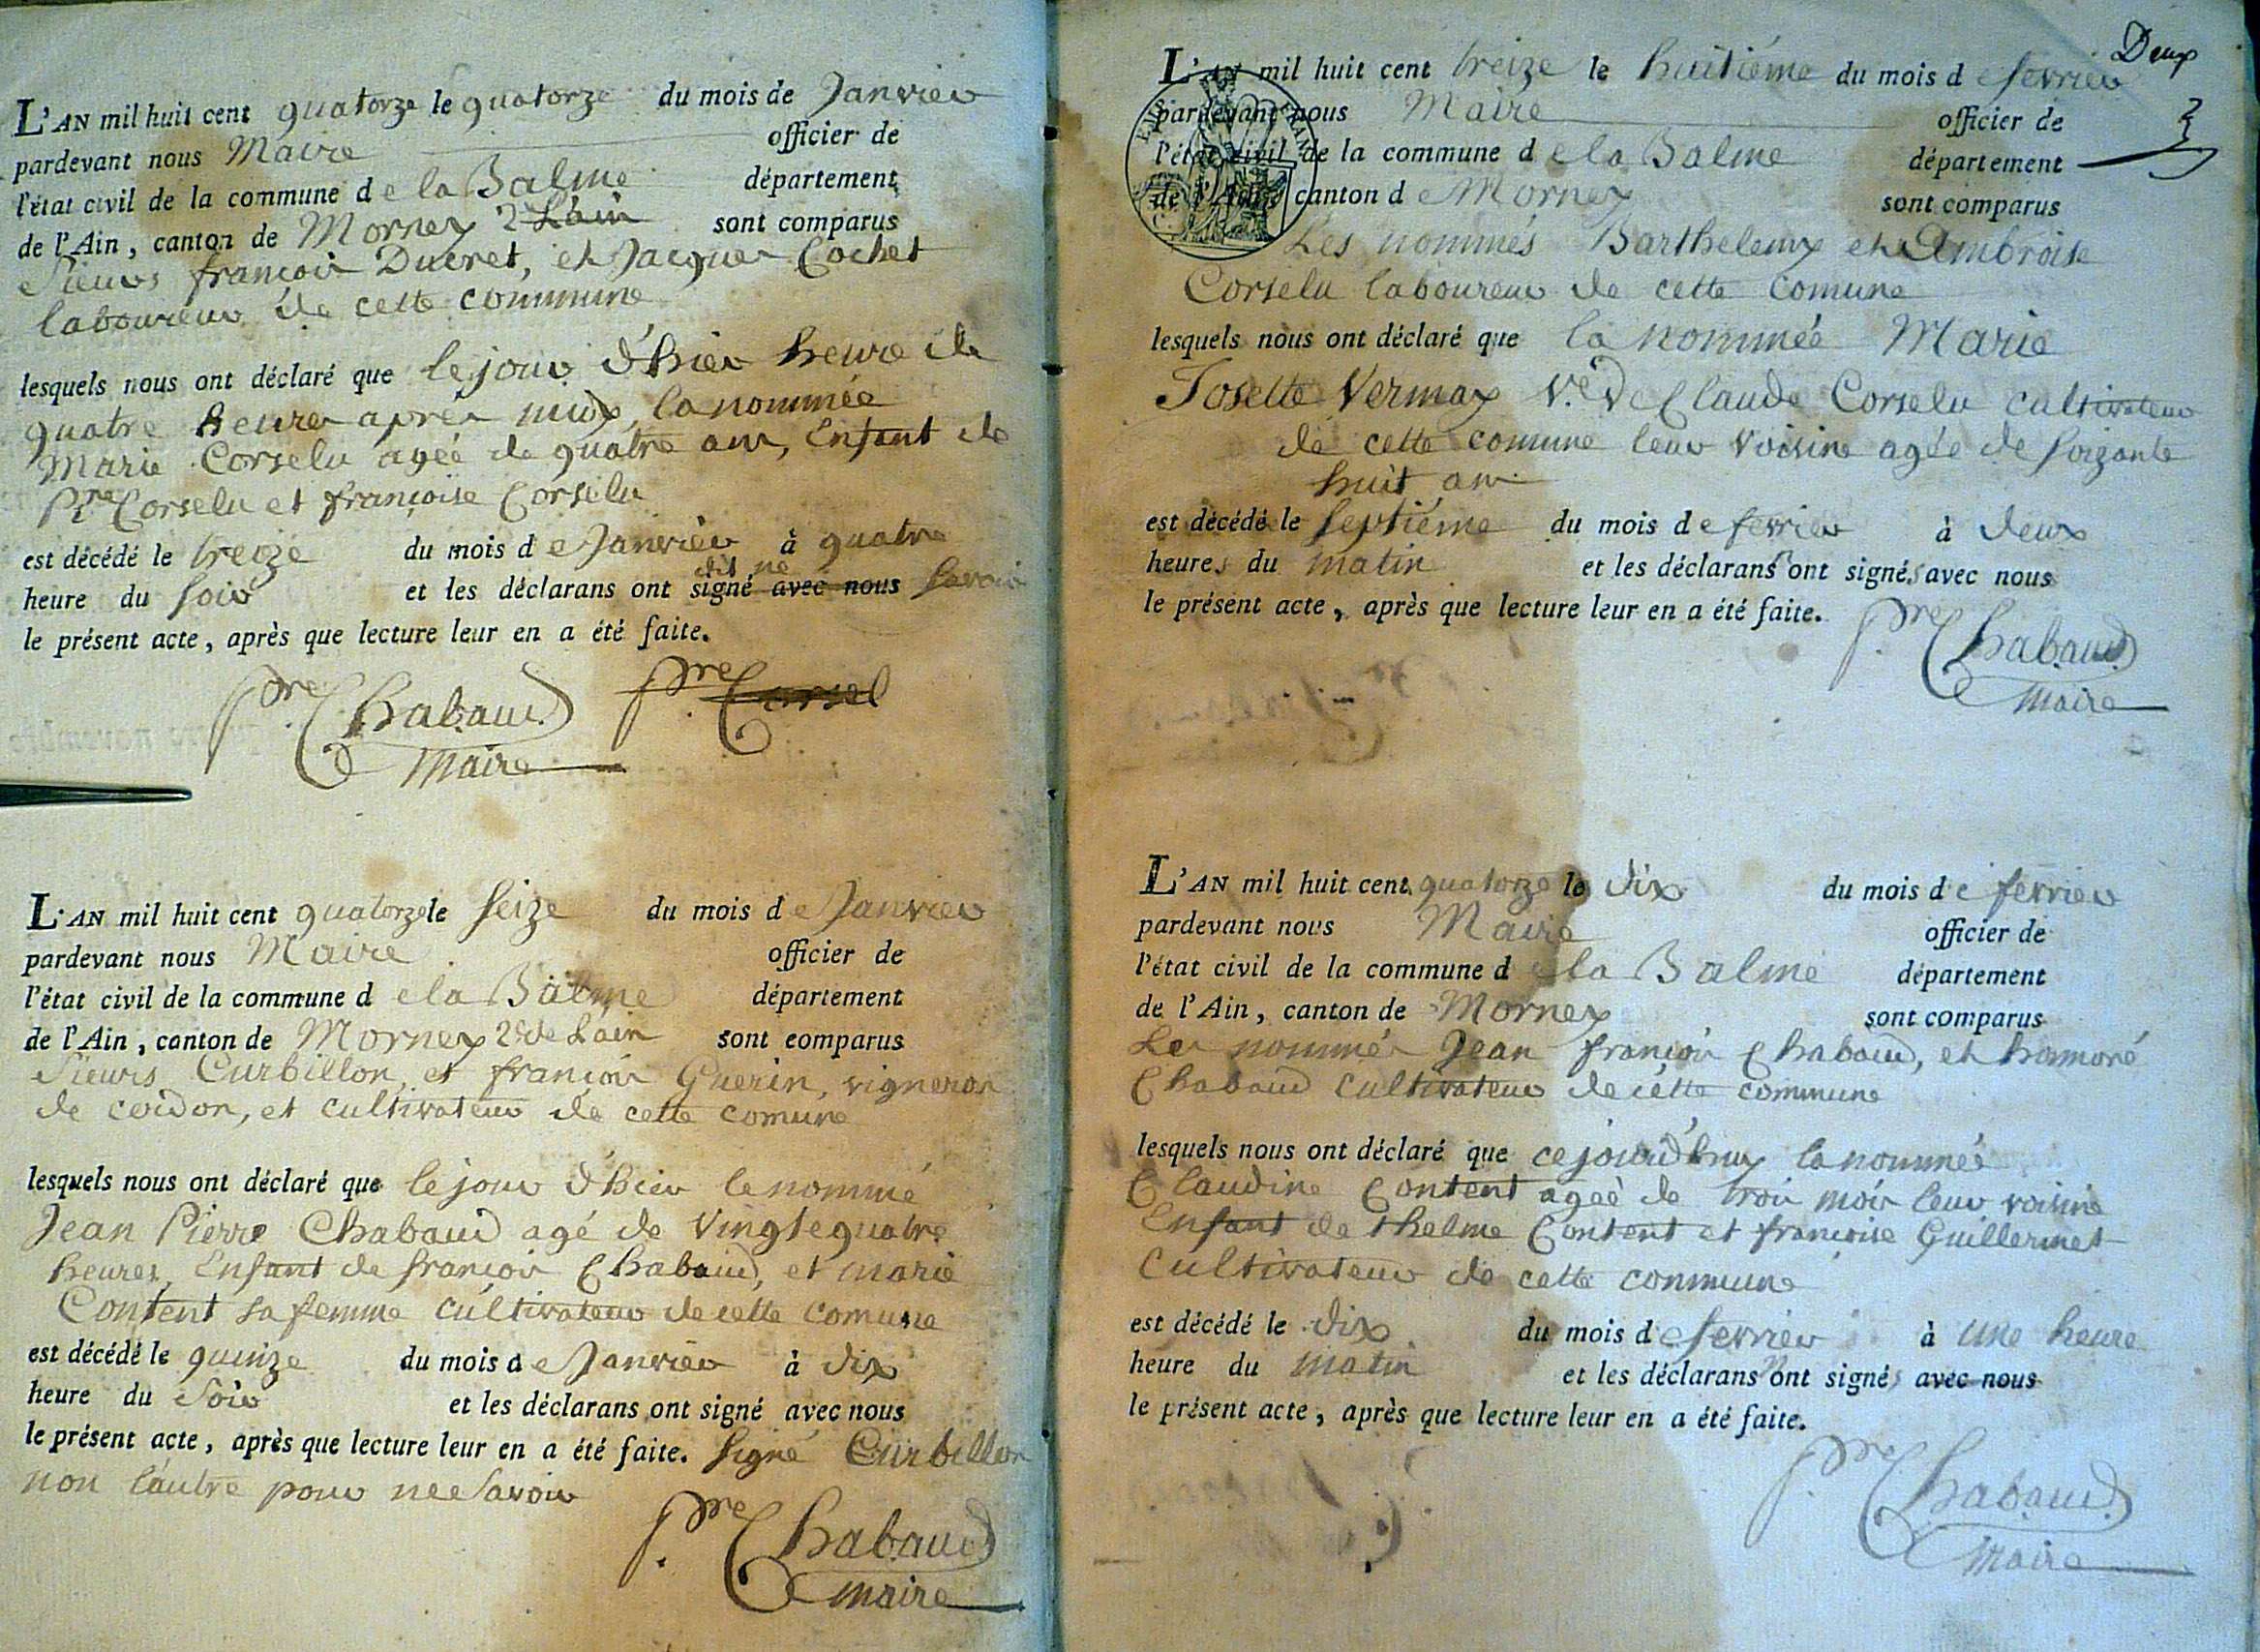 L'AN mil huit cent quatorze le quatorze du mois de Janvier
pardevant nous Maire officier de
l'état civil de la commune de la Balme département
de l'Ain, canton de Mornex 2e L'ain sont comparus
Sieurs françois Ducret, et Jacques Cochet
laboureur de cette commune
lesquels nous ont déclaré que le jour d'hier heure de
quatre heures après midy, la nommée
Marie Corselu agée de quatre ans, Enfant de
Pre Corselu et françoise Corselu
est décédé le treize du mois de Janvier à quatre
heure du soir et les déclarans ont dit ne signé avec nous savoir
le présent acte, après que lecture leur en a été faite.
Pre Chabaud Pre Corsel
Maire
L'AN mil huit cent quatorze le seize du mois de Janvier
pardevant nous Maire officier de
l'état civil de la commune de la Balme département
de l'Ain, canton de Mornex 2e de L'ain sont comparus
Sieurs Curbillon, et françois Guerin, vigneron
de cordon, et cultivateur de cette comune
lesquels nous ont déclaré que le jour d'hier le nommé
Jean Pierre Chabaud agé de Vingtequatre
heures, Enfant de françois Chabaud, et marie
Content sa femme cultivateur de cette comune
est décédé le quinze du mois de Janvier à dix
heure du Soir et les déclarans ont signé avec nous
le présent acte, après que lecture leur en a été faite. signé Curbillon
non l'autre pour ne savoir
Pre Chabaud
Maire
Deux
L'AN mil huit cent treize le huitiéme du mois de fevrier
pardevant nous Maire officier de
l'état civil de la commune de la Balme département
de l'Ain, canton de Mornex sont comparus
Les nommés Barthelemy et Ambroise
Corselu laboureur de cette comune
lesquels nous ont déclaré que la nommée Marie
Josette Vermay Ve de Claude Corselu cultivateur
de cette comune leur voisine agée de soizante
huit ans
est décédé le septiéme du mois de fevrier à deux
heures du matin et les déclarans ont signés avec nous
le présent acte, après que lecture leur en a été faite.
Pre Chabaud
Maire
L'AN mil huit cent quatorze le dix du mois de fevrier
pardevant nous Maire officier de
l'état civil de la commune de la Balme département
de l'Ain, canton de Mornex sont comparus
Les nommés Jean françois Chabaud, et honoré
Chabaud cultivateur de cette commune
lesquels nous ont déclaré que cejourd'huy la nommée
Claudine Content agée de trois mois leur voisine
Enfant de thelme Content et françoise Guillermet
cultivateur de cette commune
est décédé le dix du mois de fevrier à une heure
heure du matin et les déclarans ont signé avec nous
le présent acte, après que lecture leur en a été faite.
Pre Chabaud
Maire